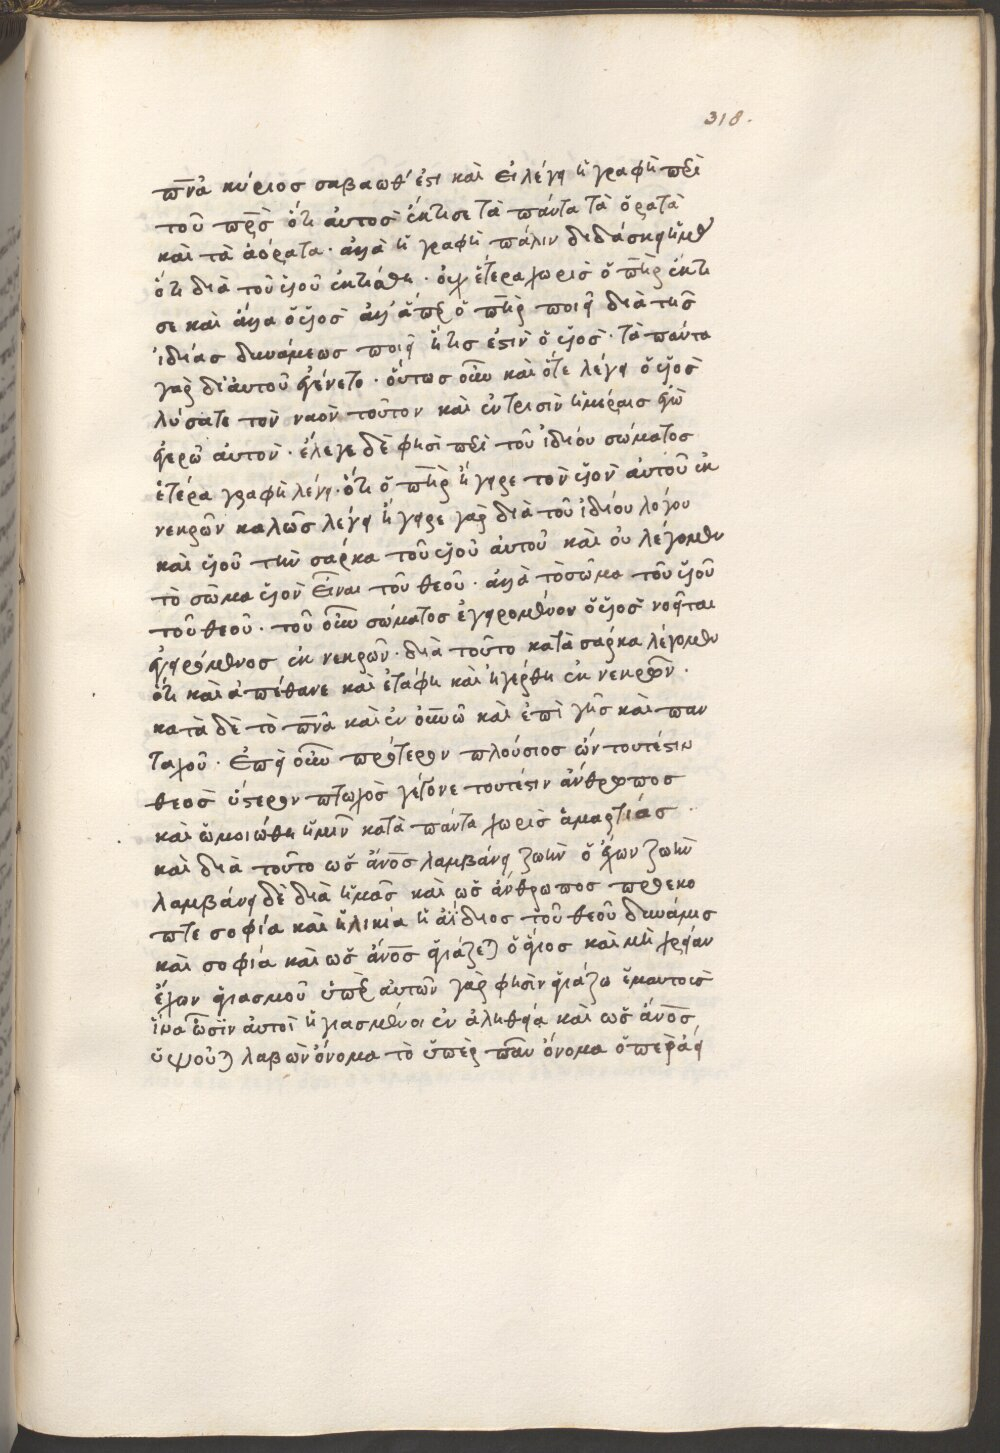 318.
πν̅α κύριος σαβαώθ ἐστι καὶ εἰ λέγει ἡ γραφὴ περὶ
τοῦ πρ̅ς ὅτι αὐτὸς ἔκτισε τὰ πάντα τὰ ὁρατὰ
καὶ τὰ ἀόρατα· ἀλλὰ ἡ γραφὴ πάλιν διδάσκει ἡμᾶς
ὅτι διὰ τοῦ υἱοῦ ἐκτίσθη· οὐχ ἕτερα χωρὶς ὁ πη̅ρ ἔκτι
σε καὶ ἄλλα ὁ υἱὸς ἀλλ' ἅπερ ὁ πη̅ρ ποιεῖ διὰ τῆς
ἰδίας δυνάμεως ποιεῖ ἥτις ἐστὶν ὁ υἱὸς· τὰ πάντα
γὰρ δι' αὐτοῦ ἐγένετο· οὕτως οὖν καὶ ὅτε λέγει ὁ υἱὸς
λύσατε τὸν ναὸν τοῦτον καὶ ἐν τρισὶν ἡμέραις ἐγὼ
ἐγερῶ αὐτὸν· ἔλεγε δὲ φησὶ περὶ τοῦ ἰδίου σώματος
ἑτέρα γραφὴ λέγει· ὅτι ὁ πη̅ρ ἤγειρε τὸν υἱὸν αὐτοῦ ἐκ
νεκρῶν καλῶς λέγει ἤγειρε γὰρ διὰ τοῦ ἰδίου λόγου
καὶ υἱοῦ τὴν σάρκα τοῦ υἱοῦ αὐτοῦ καὶ οὐ λέγομεν
τὸ σῶμα υἱὸν εἶναι τοῦ θεοῦ· ἀλλὰ τὸ σῶμα τοῦ υἱοῦ
τοῦ θεοῦ· τοῦ οὖν σώματος ἐγειρομένου ὁ υἱὸς νοεῖται
ἐγειρόμενος ἐκ νεκρῶν· διὰ τοῦτο κατὰ σάρκα λέγομεν
ὅτι καὶ ἀπέθανε καὶ ἐτάφη καὶ ἠγέρθη ἐκ νεκρῶν·
κατὰ δὲ τὸ πν̅α καὶ ἐν οὐνῶ καὶ ἐπὶ γῆς καὶ παν
ταχοῦ· ἐπεὶ οὖν πρότερον πλούσιος ὢν τουτέστιν
θεὸς ὕστερον πτωχὸς γέγονε τουτέστιν ἄνθρωπος
καὶ ὡμοιώθη ἡμῖν κατὰ πάντα χωρὶς ἁμαρτίας
καὶ διὰ τοῦτο ὡς ἄνο̅ς λαμβάνει ζωὴν ὁ ἔχων ζωὴν
λαμβάνει δὲ διὰ ἡμᾶς καὶ ὡς ἄνθρωπος προεκο
πτε σοφία καὶ ἡλικία ἡ ἀΐδιος τοῦ θεοῦ δύναμις
καὶ σοφία καὶ ὡς ἄνο̅ς ἁγιάζεται ὁ ἅγιος καὶ μὴ χρείαν
ἔχων ἁγιασμοῦ ὑπὲρ αὐτῶν γὰρ φησὶν ἁγιάζω ἐμαυτοὺς
ἵνα ὦσιν αὐτοὶ ἡγιασμένοι ἐν ἀληθεία καὶ ὡς ἄνο̅ς
ὑψοῦται λαβὼν ὄνομα τὸ ὑπὲρ πᾶν ὄνομα